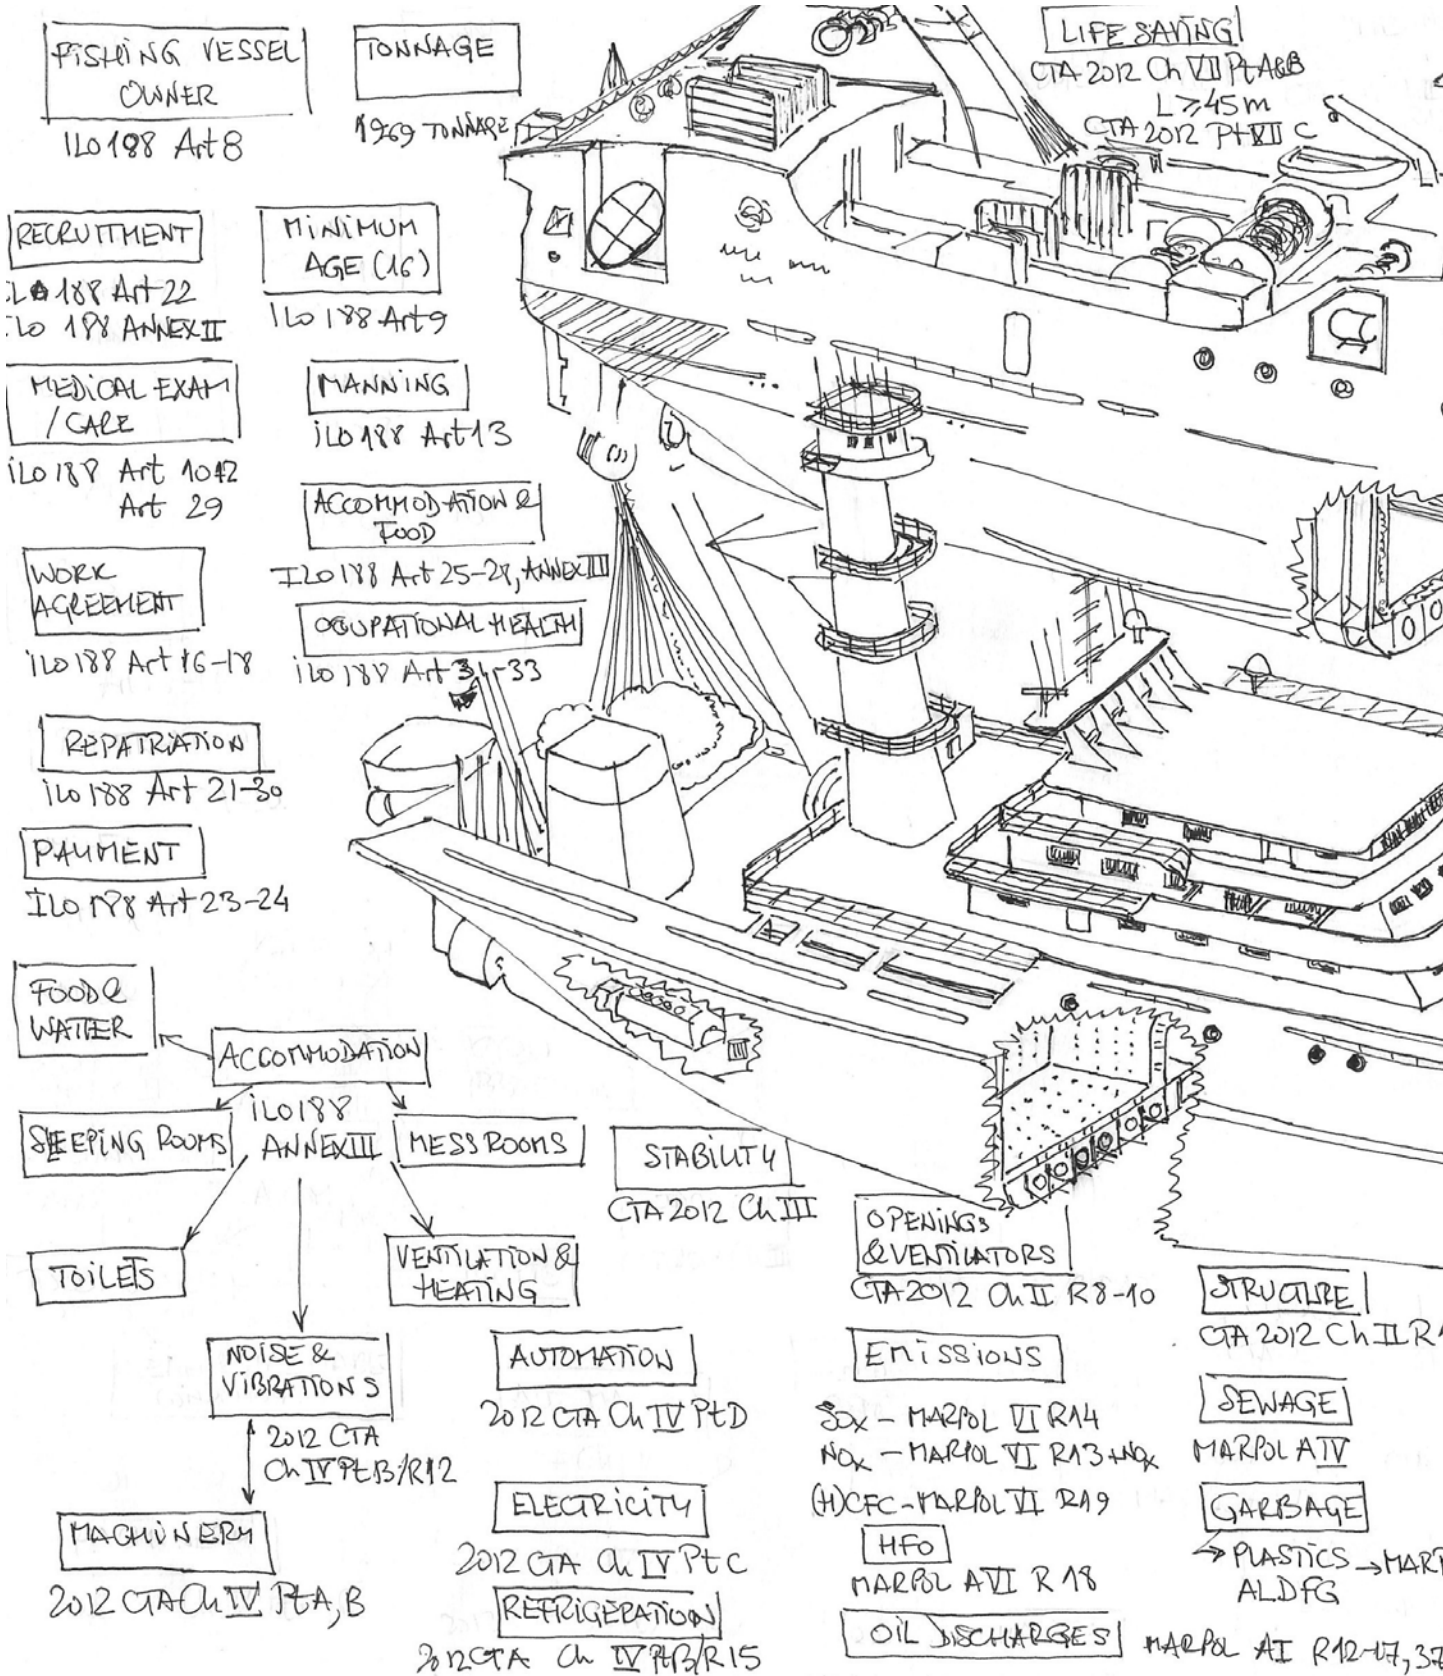 FISHING VESSEL
OWNER
ILO 188 Art 8
TONNAGE
1969 TONNAGE
LIFE SAVING
CTA 2012 Ch VII Pt A&B
L ≥ 45 m
CTA 2012 Pt VII C
RECRUITMENT
188 Art 22
ILO 188 ANNEX II
MINIMUM
AGE (16)
ILO 188 Art 9
MEDICAL EXAM
/ CARE
ILO 188 Art 10-12
Art 29
MANNING
ILO 188 Art 13
ACCOMMODATION &
FOOD
ILO 188 Art 25-28, ANNEX III
WORK
AGREEMENT
ILO 188 Art 16-18
OCUPATIONAL HEALTH
ILO 188 Art 31-33
REPATRIATION
ILO 188 Art 21-30
PAYMENT
ILO 188 Art 23-24
FOOD &
WATTER
ACCOMMODATION
ILO 188
ANNEX III
SLEEPING ROOMS
MESS ROOMS
TOILETS
VENTILATION &
HEATING
NOISE &
VIBRATIONS
2012 CTA
Ch IV Pt B/R12
MACHINERY
2012 CTA Ch IV Pt A, B
STABILITY
CTA 2012 Ch III
OPENINGS
& VENTILATORS
CTA 2012 Ch II R 8-10
STRUCTURE
CTA 2012 Ch II R
AUTOMATION
2012 CTA Ch IV Pt D
ELECTRICITY
2012 CTA Ch IV Pt C
REFRIGERATION
2012 CTA Ch IV Pt B/R15
EMISSIONS
SOx - MARPOL VI R14
NOx - MARPOL VI R13 + NOx
(H)CFC - MARPOL VI R19
HFO
MARPOL A VI R 18
OIL DISCHARGES
MARPOL A I R12-17, 37
SEWAGE
MARPOL A IV
GARBAGE
→ PLASTICS → MARP
ALDFG